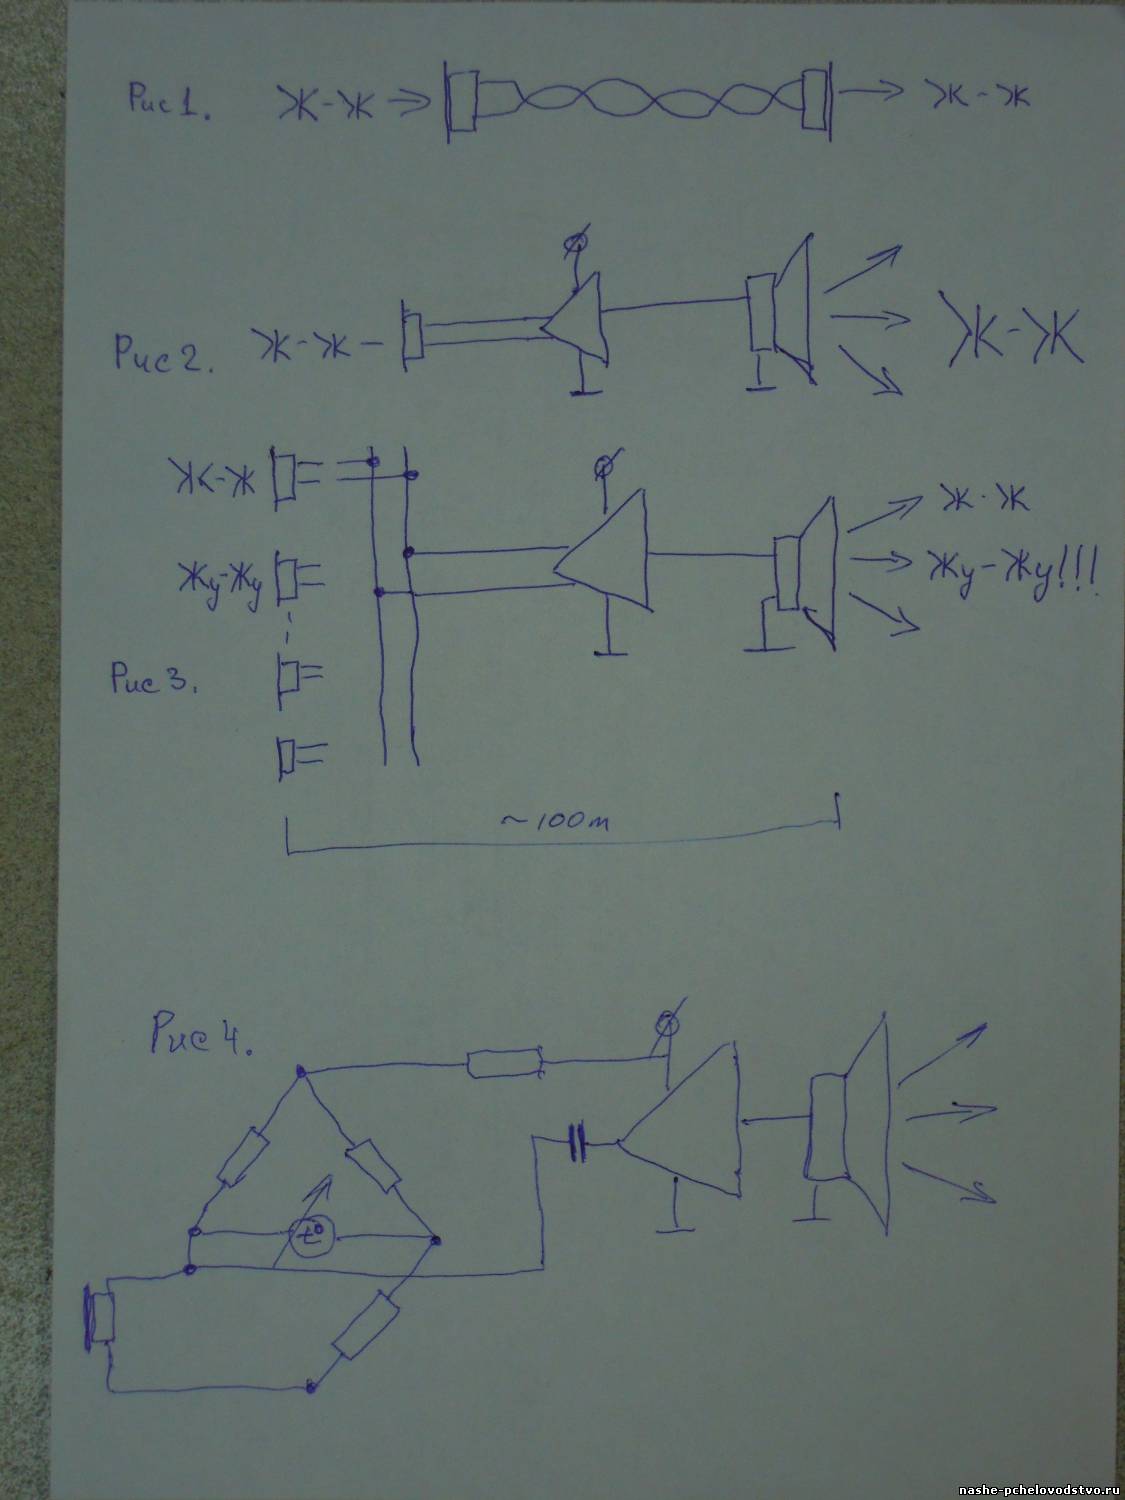 Рис 1. Ж-Ж Ж-Ж
Рис 2. Ж-Ж Ж-Ж
Ж-Ж Ж-Ж
Жу-Жу Жу-Жу!!!
Рис 3.
~100m
Рис 4.
t°
nashe-pchelovodstvo.ru